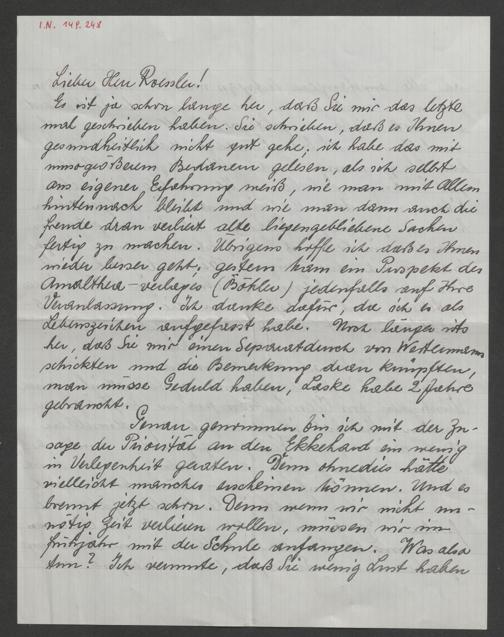 I.N. 149.248
Lieber Herr Roessler!
Es ist ja schon lange her, daß Sie mir das letzte
mal geschrieben haben. Sie schrieben, daß es Ihnen
gesundheitlich nicht gut gehe, ich habe das mit
umso größerem Bedauern gelesen, als ich selbst
aus eigener Erfahrung weiß, wie man mit Allem
hintennach bleibt und wie man dann auch die
Freude dran verliert alte liegengebliebene Sachen
fertig zu machen. Übrigens hoffe ich daß es Ihnen
wieder besser geht, gestern kam ein Prospekt des
Amalthea-verlages (Böhler) jedenfalls auf Ihre
Veranlassung. Ich danke dafür, da ich es als
Lebenszeichen aufgefasst habe. Noch länger ists
her, daß Sie mir einen Separatdruck von Westermann
schickten und die Bemerkung dran knüpften,
man müsse Geduld haben, Laske habe 2 Jahre
gebraucht.
Genau genommen bin ich mit der Zu-
sage der Priorität an den Ekkehard ein wenig
in Verlegenheit geraten. Denn ohnedies hätte
vielleicht manches erscheinen können. Und es
brennt jetzt schon. Denn wenn wir nicht un-
nötig Zeit verlieren wollen, müssen wir im
Frühjahr mit der Schule anfangen. Was also
tun? Ich vermute, daß Sie wenig Lust haben